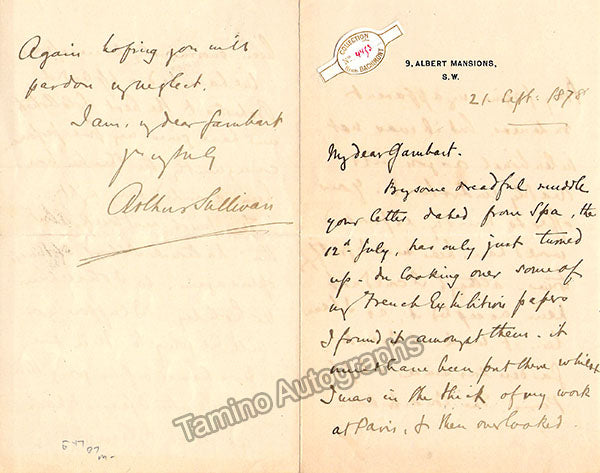 9, ALBERT MANSIONS,
S.W.
21. Sept: 1878
My dear Gambart.
By some dreadful muddle
your letter dated from Spa, the
12th July, has only just turned
up. In looking over some of
my French Exhibition papers
I found it amongst them. it
must have been put there whilst
I was in the thick of my work
at Paris, & then overlooked.
Again hoping you will
pardon my neglect.
I am, my dear Gambart
Yrs truly
Arthur Sullivan
COLLECTION
No. 4453
DACHIMONT
Tamino Autographs